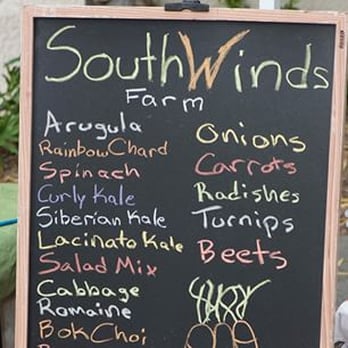 SouthWinds
Farm
Arugula
Rainbow Chard
Spinach
Curly Kale
Siberian Kale
Lacinato Kale
Salad Mix
Cabbage
Romaine
Bok Choi
Onions
Carrots
Radishes
Turnips
Beets